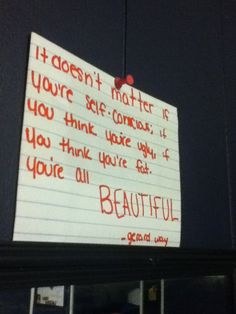 it doesn't matter if
you're self-conscious, if
you think you're ugly, if
you think you're fat.
you're all
BEAUTIFUL
-gerard way